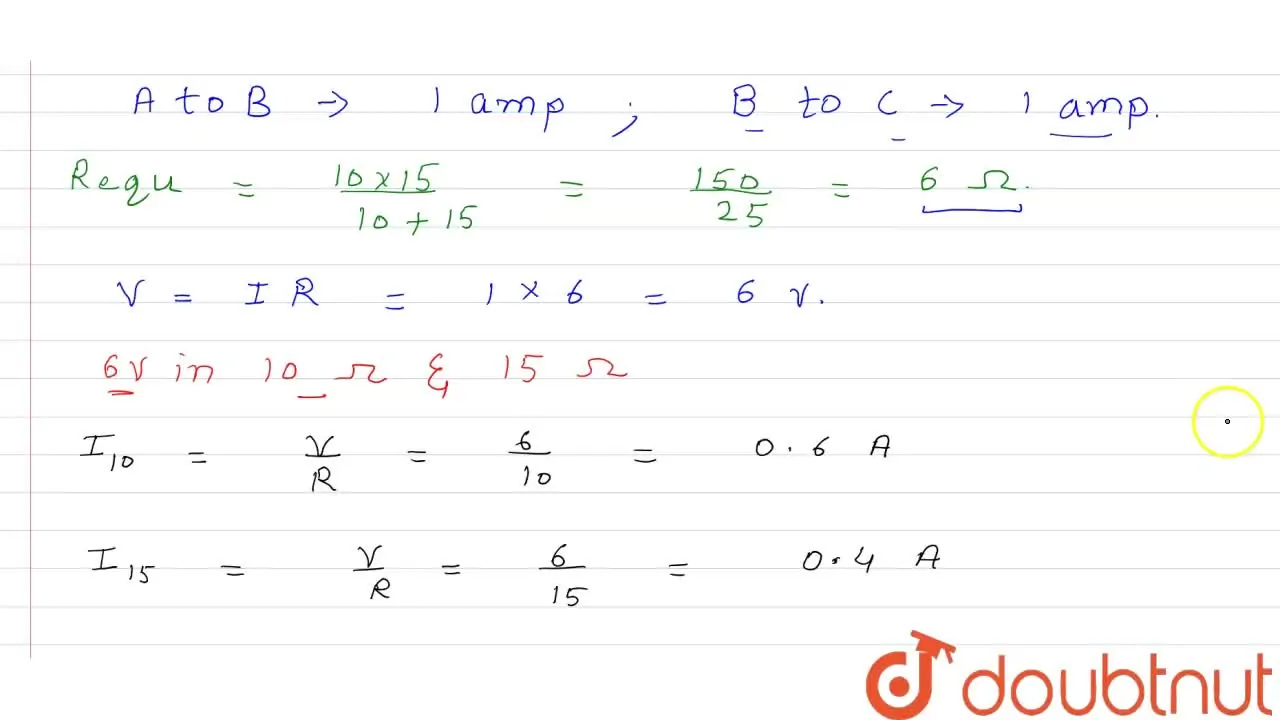 A to B → 1 amp ; B to C → 1 amp.
Requ = 10×15/10+15 = 150/25 = 6 Ω.
V = IR = 1 × 6 = 6 v.
6V in 10 Ω & 15 Ω
I₁₀ = V/R = 6/10 = 0.6 A
I₁₅ = V/R = 6/15 = 0.4 A
doubtnut